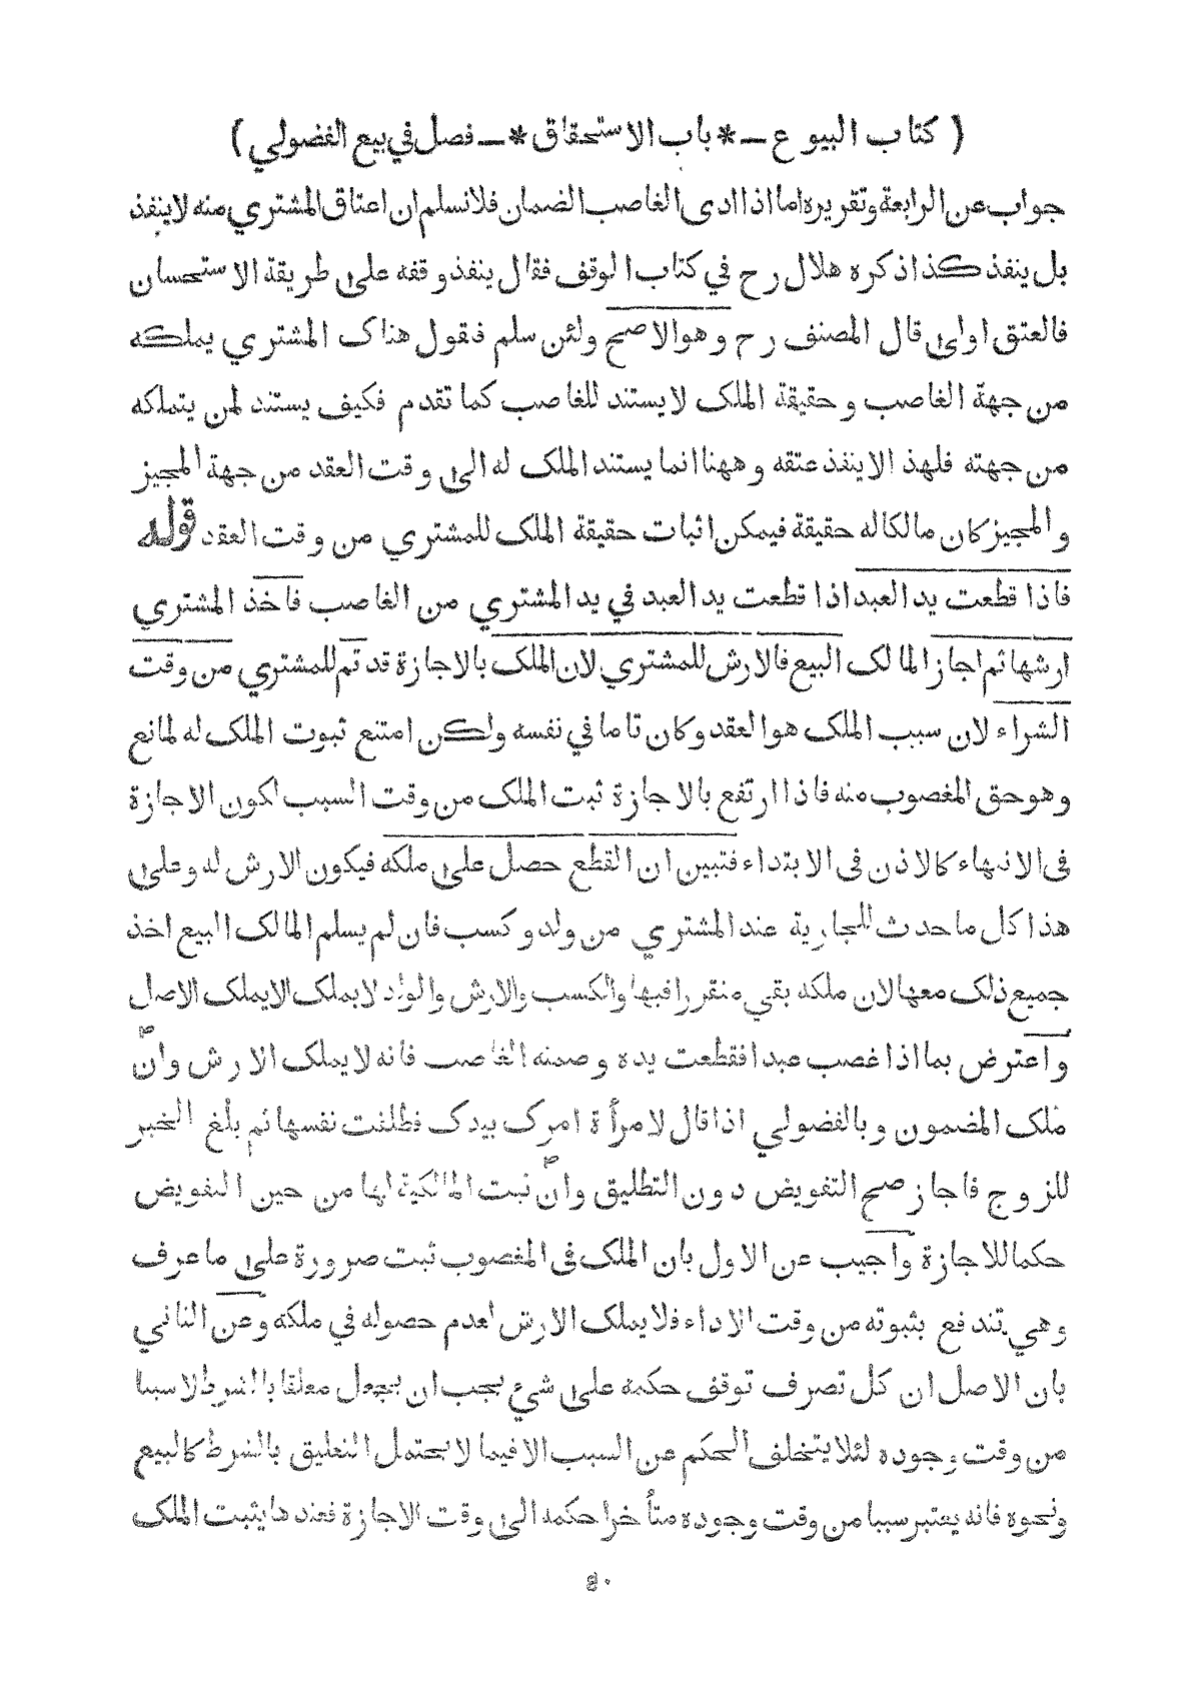 ( كتاب البيوع — * باب الاستحقاق * — فصل في بيع الفضولي )
جواب عن الرابعة وتقريره اما اذا ادى الغاصب الضمان فلا نسلم ان اعتاق المشتري منه لا ينفذ
بل ينفذ كذا ذكره هلال رح في كتاب الوقف فقال ينفذ وقفه على طريقة الاستحسان
فالعتق اولى قال المصنف رح وهو الاصح ولئن سلم فنقول هناك المشتري يملكه
من جهة الغاصب وحقيقة الملك لا يستند للغاصب كما تقدم فكيف يستند لمن يتملكه
من جهته فلهذا لا ينفذ عتقه وههنا انما يستند الملك له الى وقت العقد من جهة المجيز
والمجيز كان مالكا له حقيقة فيمكن اثبات حقيقة الملك للمشتري من وقت العقد قوله
فاذا قطعت يد العبد اذا قطعت يد العبد في يد المشتري من الغاصب فاخذ المشتري
ارشها ثم اجاز المالك البيع فالارش للمشتري لان الملك بالاجازة قد تم للمشتري من وقت
الشراء لان سبب الملك هو العقد وكان تاما في نفسه ولكن امتنع ثبوت الملك له لمانع
وهو حق المغصوب منه فاذا ارتفع بالاجازة ثبت الملك من وقت السبب لكون الاجازة
فى الانهاء كالاذن فى الابتداء فتبين ان القطع حصل على ملكه فيكون الارش له وعلى
هذا كل ما حدث للجارية عند المشتري من ولد وكسب فان لم يسلم المالك البيع اخذ
جميع ذلك معها لان ملكه بقي متقررا فيها والكسب والارش والولد لا يملك الا بملك الاصل
واعترض بما اذا غصب عبدا فقطعت يده وضمنه الغاصب فانه لا يملك الارش وان
ملك المضمون وبالفضولي اذا قال لامرأة امرك بيدك فطلقت نفسها ثم بلغ الخبر
للزوج فاجاز صح التفويض دون التطليق وان ثبت المالكية لها من حين التفويض
حكما للاجازة واجيب عن الاول بان الملك فى المغصوب ثبت ضرورة على ما عرف
وهي تندفع بثبوته من وقت الاداء فلا يملك الارش لعدم حصوله في ملكه وعن الثاني
بان الاصل ان كل تصرف توقف حكمه على شيء يجب ان يجعل معلقا بالشرط لا سببا
من وقت وجوده لئلا يتخلف الحكم عن السبب الا فيما لا يحتمل التعليق بالشرط كالبيع
ونحوه فانه يعتبر سببا من وقت وجوده متأخرا حكمه الى وقت الاجازة فعندها يثبت الملك